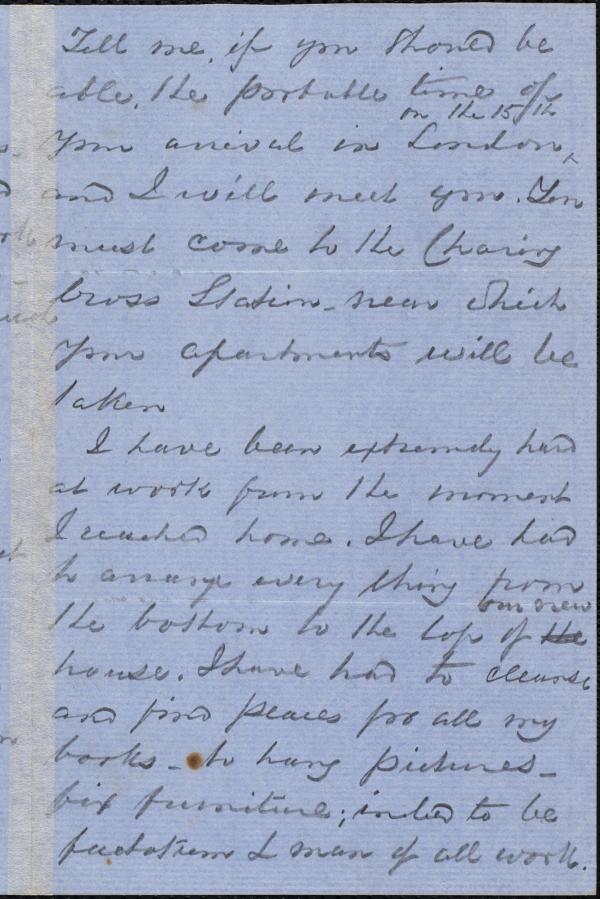 Tell me, if you should be
able, the probable time of
on the 15th
your arrival in London,
and I will meet you. You
must come to the Charing
Cross Station - near which
your apartments will be
taken
I have been extremely hard
at work from the moment
I reached home. I have had
to arrange every thing from
our new
the bottom to the top of the
house. I have had to cleanse
and find places for all my
books - to hang pictures -
fix furniture; indeed to be
factotum & man of all work.